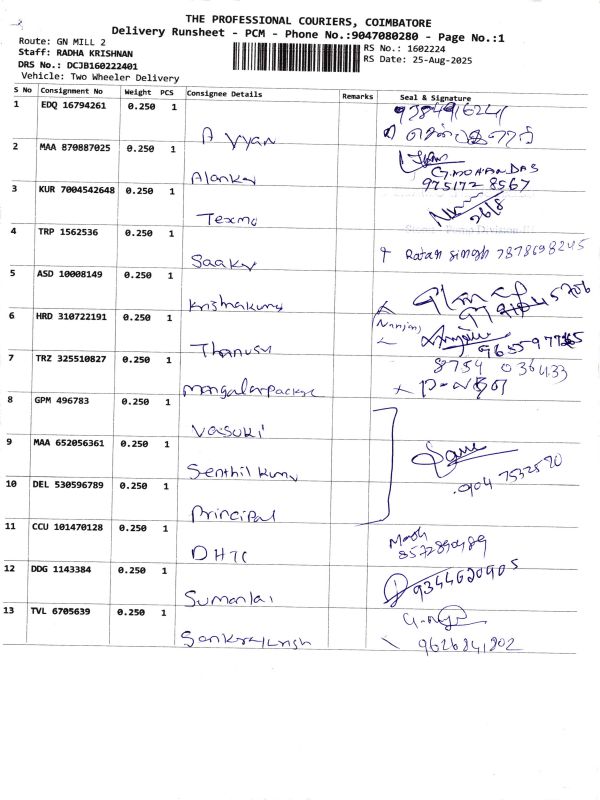 THE PROFESSIONAL COURIERS, COIMBATORE
Delivery Runsheet - PCM - Phone No.:9047080280 - Page No.:1
Route: GN MILL 2
Staff: RADHA KRISHNAN
DRS No.: DCJB160222401
Vehicle: Two Wheeler Delivery
RS No.: 1602224
RS Date: 25-Aug-2025
S No Consignment No Weight PCS Consignee Details Remarks Seal & Signature
1 EDQ 16794261 0.250 1 A Vyan
2 MAA 870887025 0.250 1 Alankar G.MOHANDAS
975172 8567
3 KUR 7004542648 0.250 1 Texmo 26/8
4 TRP 1562536 0.250 1 Saakv Ratan singh 7878698245
5 ASD 10008149 0.250 1 Krishnakumar
6 HRD 310722191 0.250 1 Thanusu
7 TRZ 325510827 0.250 1 mangalarpackge 8754 036433
8 GPM 496783 0.250 1 Vasuki
9 MAA 652056361 0.250 1 Senthil kumv 904 7532590
10 DEL 530596789 0.250 1 Principal
11 CCU 101470128 0.250 1 DHTC
12 DDG 1143384 0.250 1 Sumanlai 9344620905
13 TVL 6705639 0.250 1 9626841802